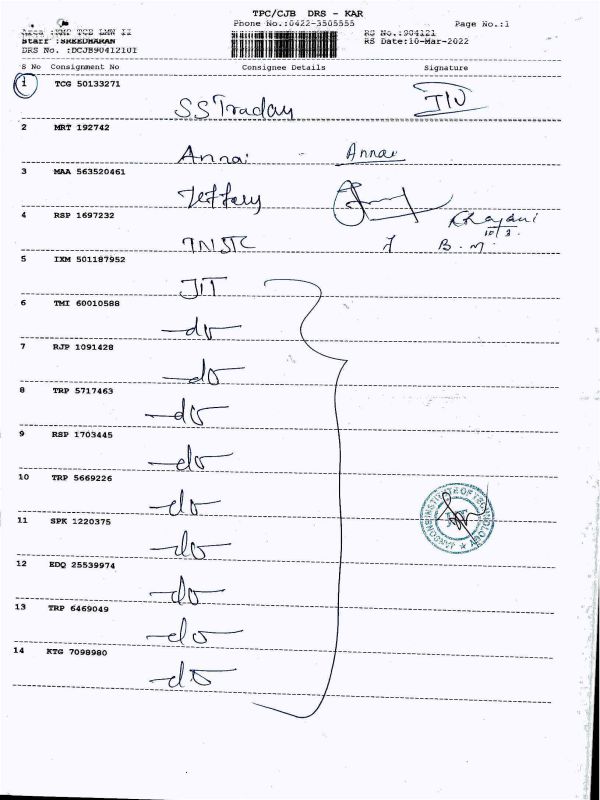 TPC/CJB DRS - KAR
Phone No.:0422-3505555 Page No.:1
RS No.:904121
Staff :SREEDHARAN RS Date:10-Mar-2022
DRS No. :DCJB904121U1
S No Consignment No Consignee Details Signature
1 TCG 50133271
SS Traday JIN
2 MRT 192742
Annai Annai
3 MAA 563520461
Jeffery
4 RSP 1697232
TNSTC B.M.
5 IXM 501187952
JIT
6 TMI 60010588
do
7 RJP 1091428
do
8 TRP 5717463
do
9 RSP 1703445
do
10 TRP 5669226
do
11 SPK 1220375
do
12 EDQ 25539974
do
13 TRP 6469049
do
14 KTG 7098980
do